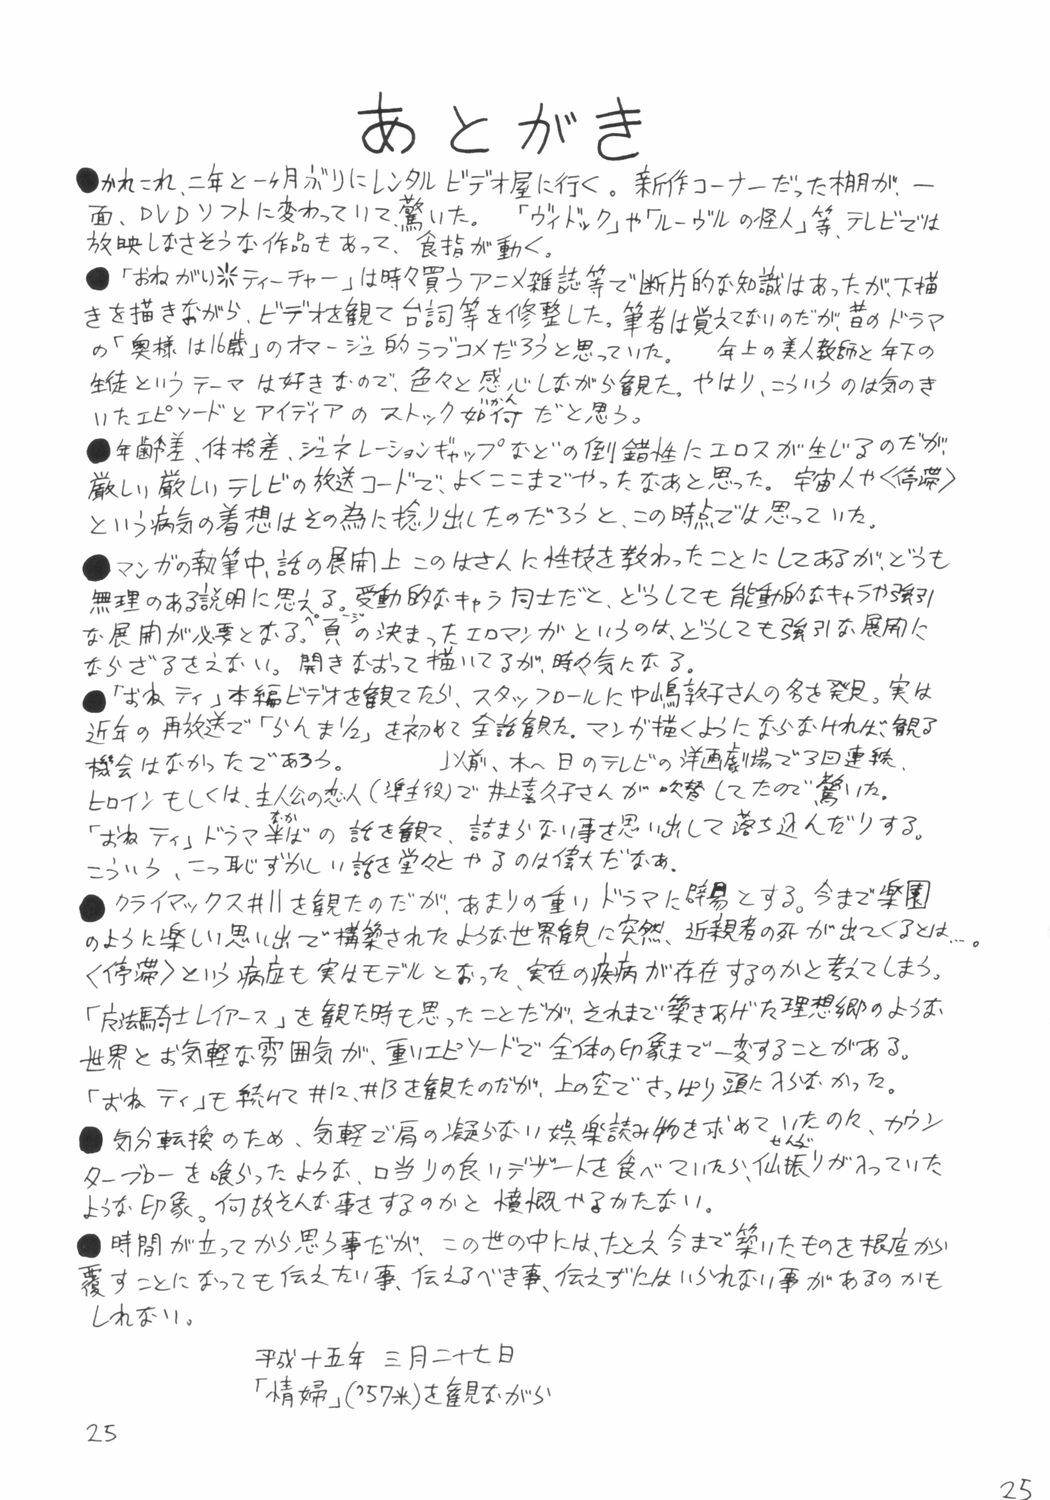 あとがき
●かれこれ、二年と一ヶ月ぶりにレンタルビデオ屋に行く。新作コーナーだった棚が、一
面、DVDソフトに変わっていて驚いた。「ヴィドック」や「ルーヴルの怪人」等、テレビでは
放映しなさそうな作品もあって、食指が動く。
●「おねがい＊ティーチャー」は時々買うアニメ雑誌等で断片的な知識はあったが、下描
きを描きながら、ビデオを観て台詞等を修整した。筆者は覚えてないのだが、昔のドラマ
の「奥様は16歳」のオマージュ的ラブコメだろうと思っていた。 年上の美人教師と年下の
生徒というテーマは好きなので、色々と感心しながら観た。やはり、こういうのは気のき
いたエピソードとアイディアのストック如何(いかん)だと思う。
●年齢差、体格差、ジェネレーションギャップなどの倒錯性にエロスが生じるのだが、
厳しい厳しいテレビの放送コードで、よくここまでやったなあと思った。宇宙人や〈停滞〉
という病気の着想はその為に捻り出したのだろうと、この時点では思っていた。
●マンガの執筆中、話の展開上このはさんに性技を教わったことにしてあるが、どうも
無理のある説明に思える。受動的なキャラ同士だと、どうしても能動的なキャラや強引
な展開が必要となる。頁(ページ)の決まったエロマンガというのは、どうしても強引な展開に
ならざるをえない。開きなおって描いてるが、時々気になる。
●「おねティ」本編ビデオを観てたら、スタッフロールに中嶋敦子さんの名を発見。実は
近年の再放送で「らんま1/2」を初めて全話観た。マンガ描くようにならなければ、観る
機会はなかったであろう。 以前、木〜日のテレビの洋画劇場で3回連続、
ヒロインもしくは、主人公の恋人(準主役)で井上喜久子さんが吹替してたので驚いた。
「おねティ」ドラマ半(なか)ばの話を観て、詰まらない事を思い出して落ち込んだりする。
こういう、こっ恥ずかしい話を堂々とやるのは偉大だなぁ。
●クライマックス#11を観たのだが、あまりの重いドラマに辟易とする。今まで楽園
のように楽しい思い出で構築されたような世界観に突然、近親者の死が出てくるとは…。
〈停滞〉という病症も実はモデルとなった、実在の疾病が存在するのかと考えてしまう。
「魔法騎士レイアース」を観た時も思ったことだが、それまで築きあげた理想郷のような
世界とお気軽な雰囲気が、重いエピソードで全体の印象まで一変することがある。
「おねティ」も続けて#12、#13を観たのだが、上の空でさっぱり頭に入らなかった。
●気分転換のため、気軽で肩の凝らない娯楽読み物を求めていたのに、カウン
ターブローを喰らったような、口当りの良いデザートを食べていたら、仙振(せんぶ)りが入っていた
ような印象。何故そんな事をするのかと憤慨やるかたない。
●時間が立ってから思う事だが、この世の中には、たとえ今まで築いたものを根底から
覆すことになっても伝えたい事、伝えるべき事、伝えずにはいられない事があるのかも
しれない。
平成十五年 三月二十七日
「情婦」('57米)を観ながら
25
25